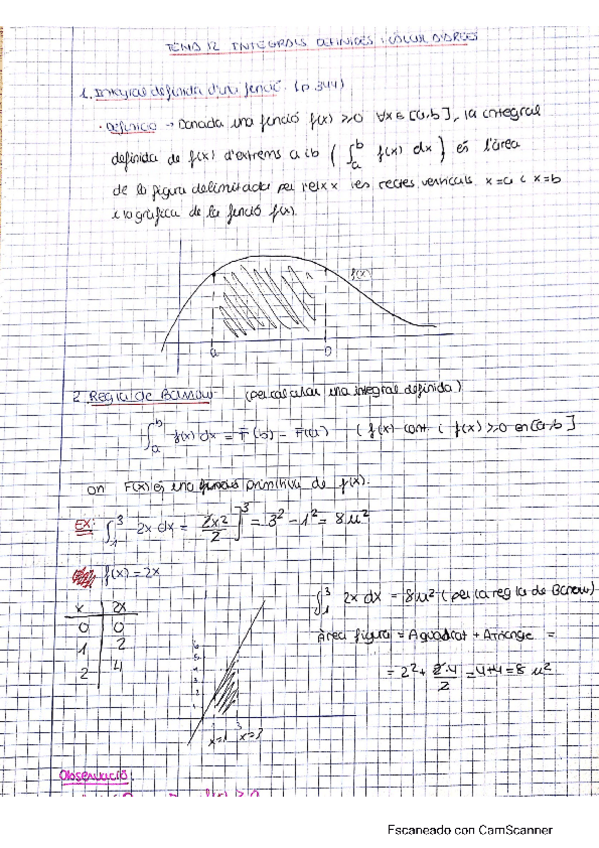 TEMA 12 INTEGRALS DEFINIDES i CÀLCUL D'ÀREES
1. Integral definida d'una funció. (p.344)
· Definició → Donada una funció f(x) ≥0 ∀x∈[a,b], la integral
definida de f(x) d'extrems a i b ( ∫ₐᵇ f(x) dx ) és l'àrea
de la figura delimitada per l'eix x i les rectes verticals x=a i x=b
i la gràfica de la funció f(x).
f(x)
a b
2. Regla de Barrow (per calcular una integral definida)
∫ₐᵇ f(x) dx = F(b) - F(a) ( f(x) cont. i f(x) ≥0 en [a,b]
on F(x) és una funció primitiva de f(x).
EX: ∫₁³ 2x dx = 2x2/2 ]³ = 3² - 1² = 8 u²
f(x) = 2x
x 2x
0 0
1 2
2 4
∫₁³ 2x dx = 8u² (per la regla de Barrow)
Àrea figura = A quadrat + A triangle =
= 2² + 2·4/2 = 4+4 = 8 u²
6
5
4
3
2
1
x=1 x=3
Observació
Escaneado con CamScanner